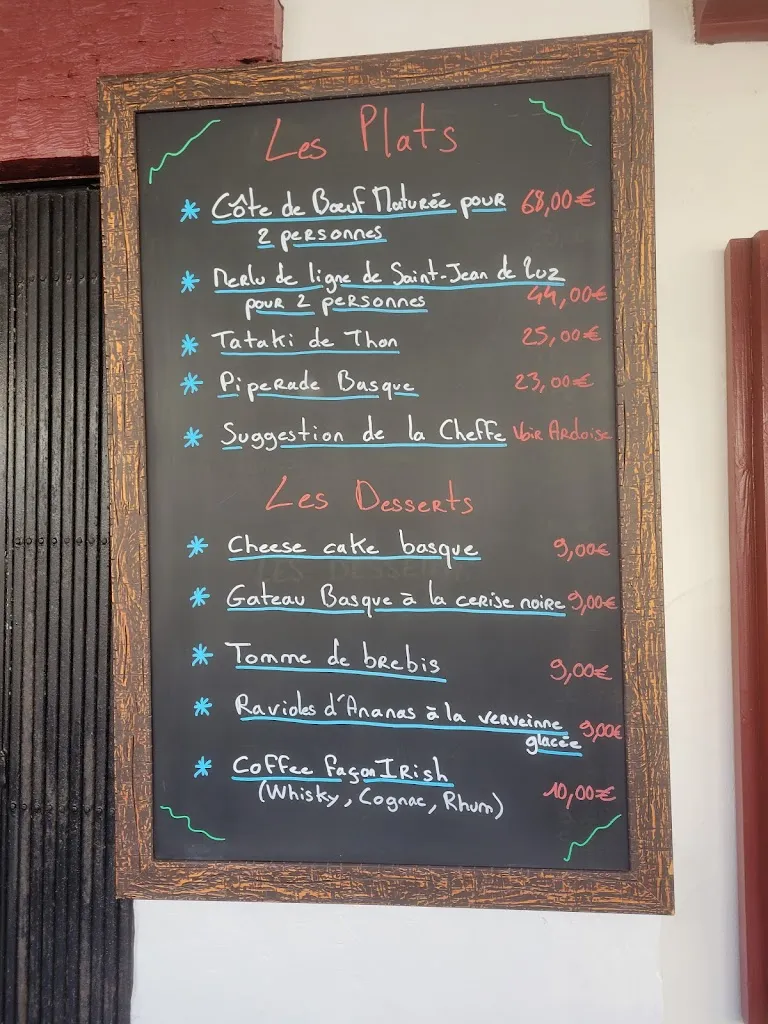 Les Plats
* Côte de Bœuf Maturée pour 68,00€
2 personnes
* Merlu de ligne de Saint-Jean de Luz
pour 2 personnes 44,00€
* Tataki de Thon 25,00€
* Piperade Basque 23,00€
* Suggestion de la Cheffe Voir Ardoise
Les Desserts
* Cheese cake basque 9,00€
* Gateau Basque à la cerise noire 9,00€
* Tomme de brebis 9,00€
* Ravioles d'Ananas à la verveinne 9,00€
glacée
* Coffee façon IRish
(Whisky, Cognac, Rhum) 10,00€